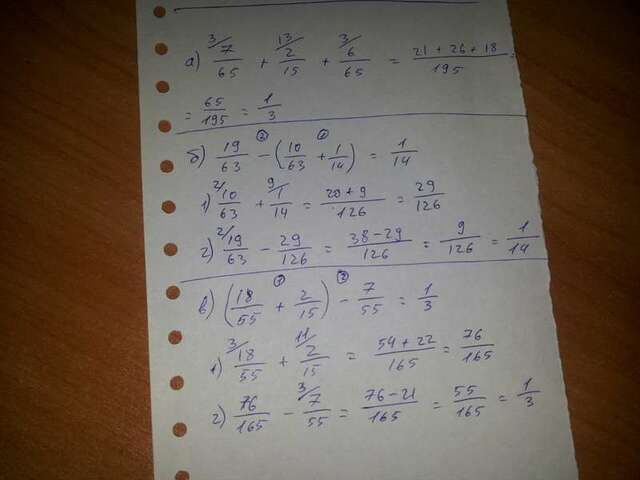 а) 3/ 7/65 + 13/ 2/15 + 3/ 6/65 = (21 + 26 + 18)/195 =
= 65/195 = 1/3
б) 19/63 ② − (10/63 ① + 1/14) = 1/14
1) 2/ 10/63 + 9/ 1/14 = (20 + 9)/126 = 29/126
2) 2/ 19/63 − 29/126 = (38 − 29)/126 = 9/126 = 1/14
в) (18/55 ① + 2/15) ② − 7/55 = 1/3
1) 3/ 18/55 + 11/ 2/15 = (54 + 22)/165 = 76/165
2) 76/165 − 3/ 7/55 = (76 − 21)/165 = 55/165 = 1/3